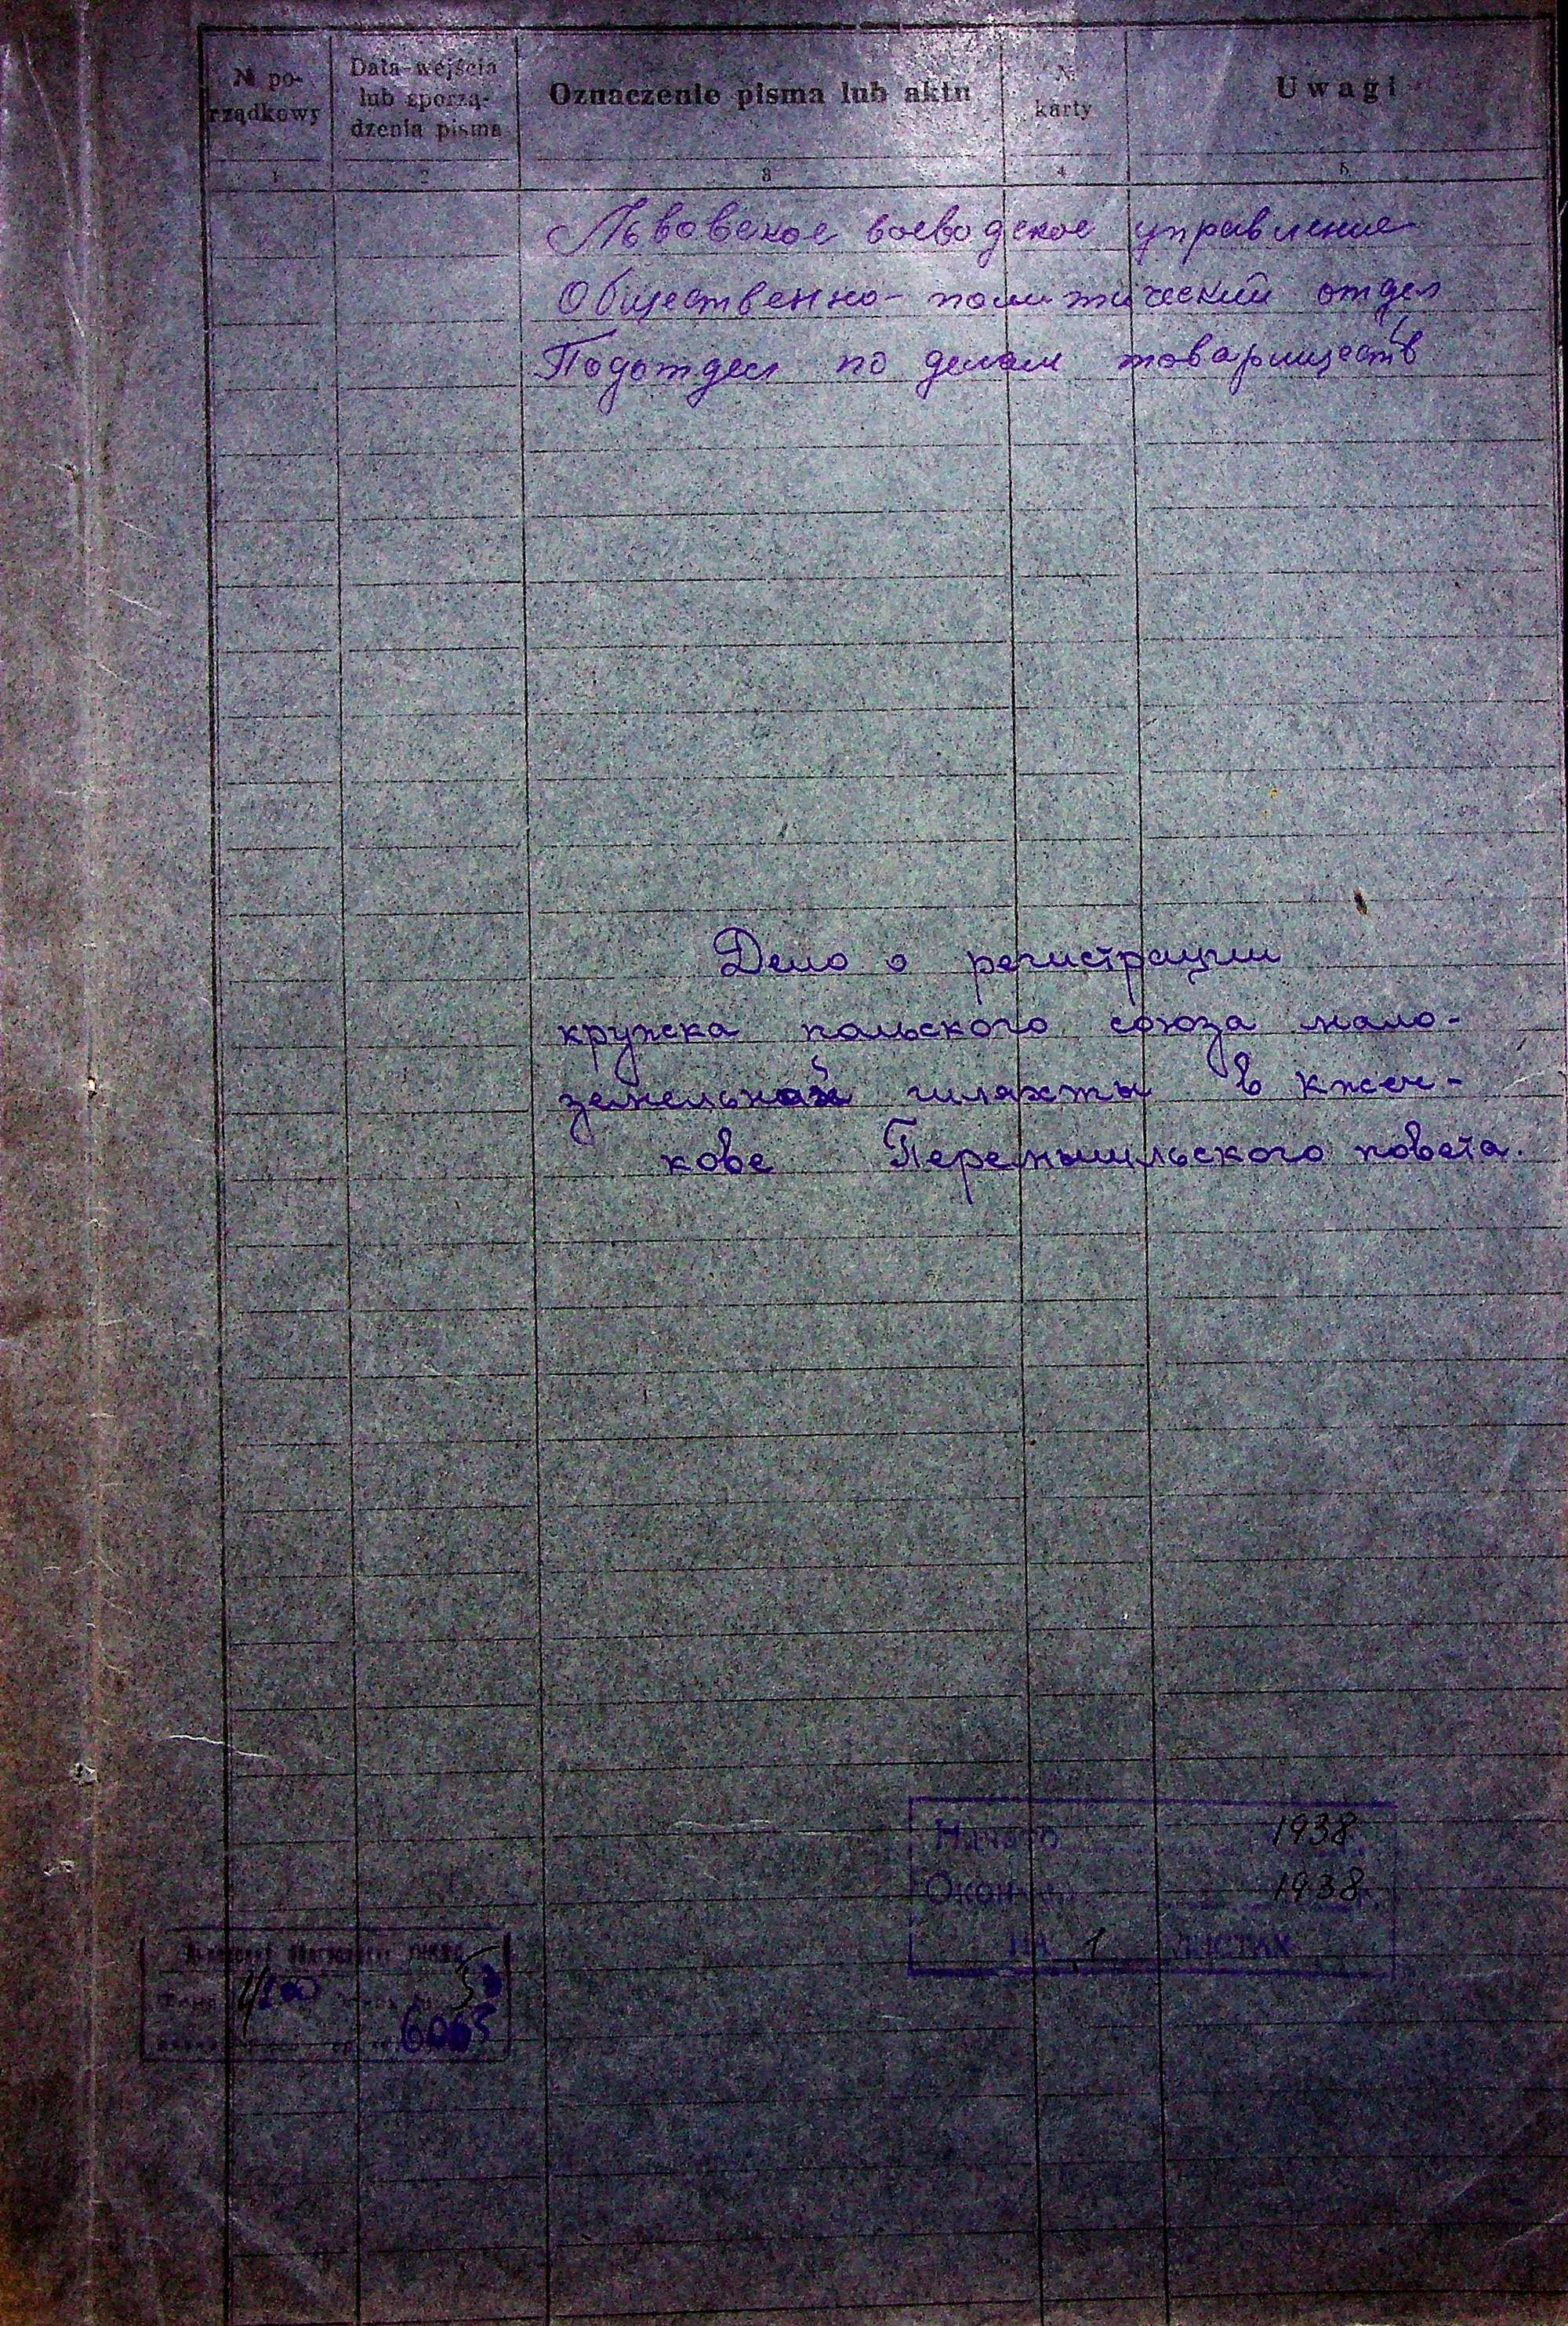 № po-
rządkowy
Data wejścia
lub sporzą-
dzenia pisma
Oznaczenie pisma lub aktu
№
karty
Uwagi
1 2 3 4 5
Львовское воеводское управление
Общественно-политический отдел
Подотдел по делам товариществ
Дело о регистрации
кружка польского союза мало-
земельной шляхты в Кжеч-
кове Перемышльского повета.
Начато 1938
Окончено 1938
НА 1 ЛИСТАХ
5
6065